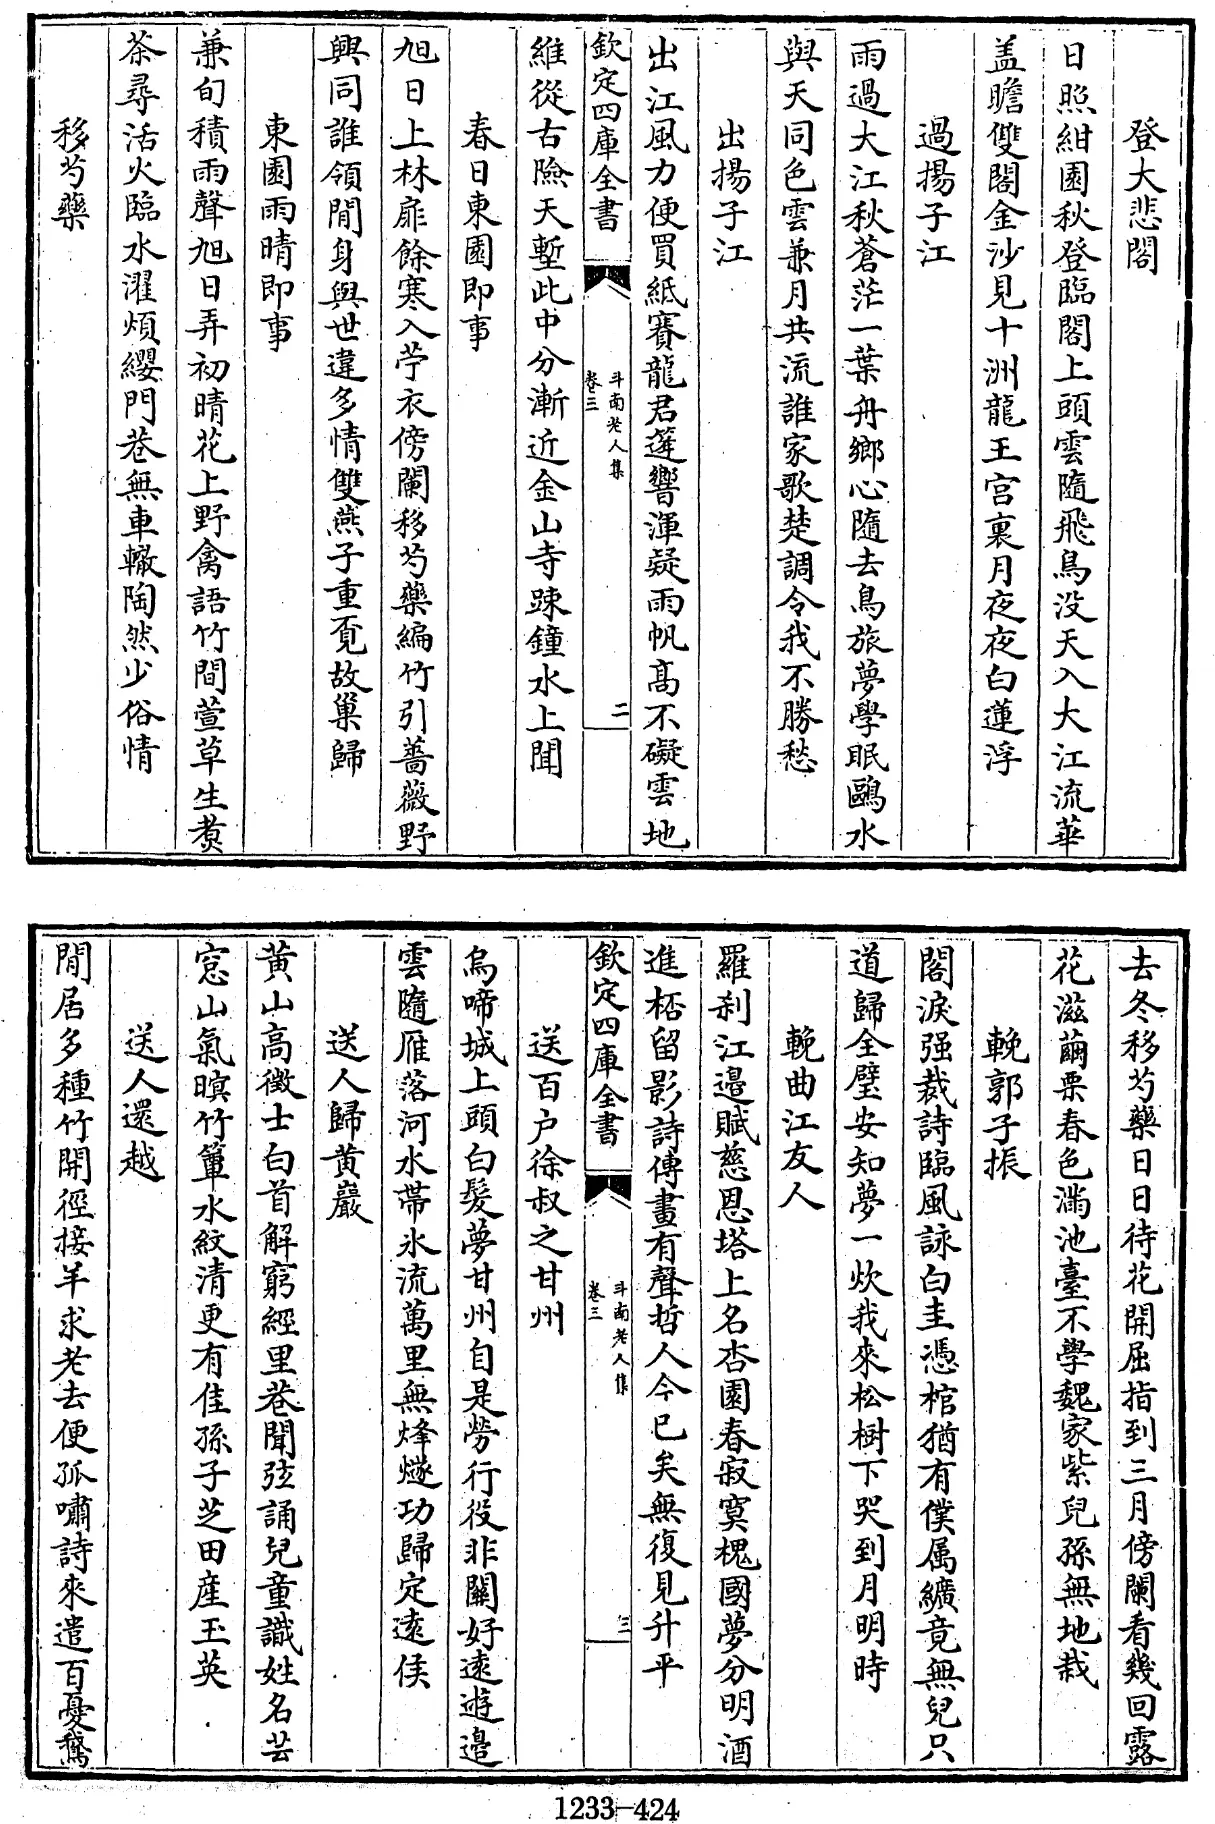 登大悲閣
日照紺園秋登臨閣上頭雲隨飛鳥没天入大江流華
盖瞻雙閣金沙見十洲龍王宫裏月夜夜白蓮浮
過揚子江
雨過大江秋蒼茫一葉舟鄉心隨去鳥旅夢學眠鷗水
與天同色雲兼月共流誰家歌楚調令我不勝愁
出揚子江
出江風力便買紙賽龍君篷響渾疑雨帆髙不礙雲地
欽定四庫全書
斗南老人集
卷三
二
維從古險天塹此中分漸近金山寺踈鐘水上聞
春日東園即事
旭日上林扉餘寒入苧衣傍闌移芍藥編竹引薔薇野
興同誰領閒身與世違多情雙燕子重覔故巢歸
東園雨晴即事
兼旬積雨聲旭日弄初晴花上野禽語竹間萱草生煑
茶尋活火臨水濯煩纓門巷無車轍陶然少俗情
移芍藥
去冬移芍藥日日待花開屈指到三月傍闌看幾回露
花滋繭栗春色滿池臺不學魏家紫兒孫無地栽
輓郭子振
閣淚强裁詩臨風詠白圭憑棺猶有僕属纊竟無兒只
道歸全璧安知夢一炊我來松樹下哭到月明時
輓曲江友人
羅刹江邉賦慈恩塔上名杏園春寂寞槐國夢分明酒
進桮留影詩傳畫有聲哲人今已矣無復見升平
欽定四庫全書
斗南老人集
卷三
三
送百户徐叔之甘州
烏啼城上頭白髪夢甘州自是勞行役非關好逺遊邉
雲隨雁落河水帶氷流萬里無烽燧功歸定逺侯
送人歸黄巖
黄山高徵士白首解窮經里巷聞弦誦兒童識姓名芸
窓山氣暝竹簟水紋清更有佳孫子芝田産玉英
送人還越
閒居多種竹開徑接羊求老去便孤嘯詩來遣百憂鵞
1233-424